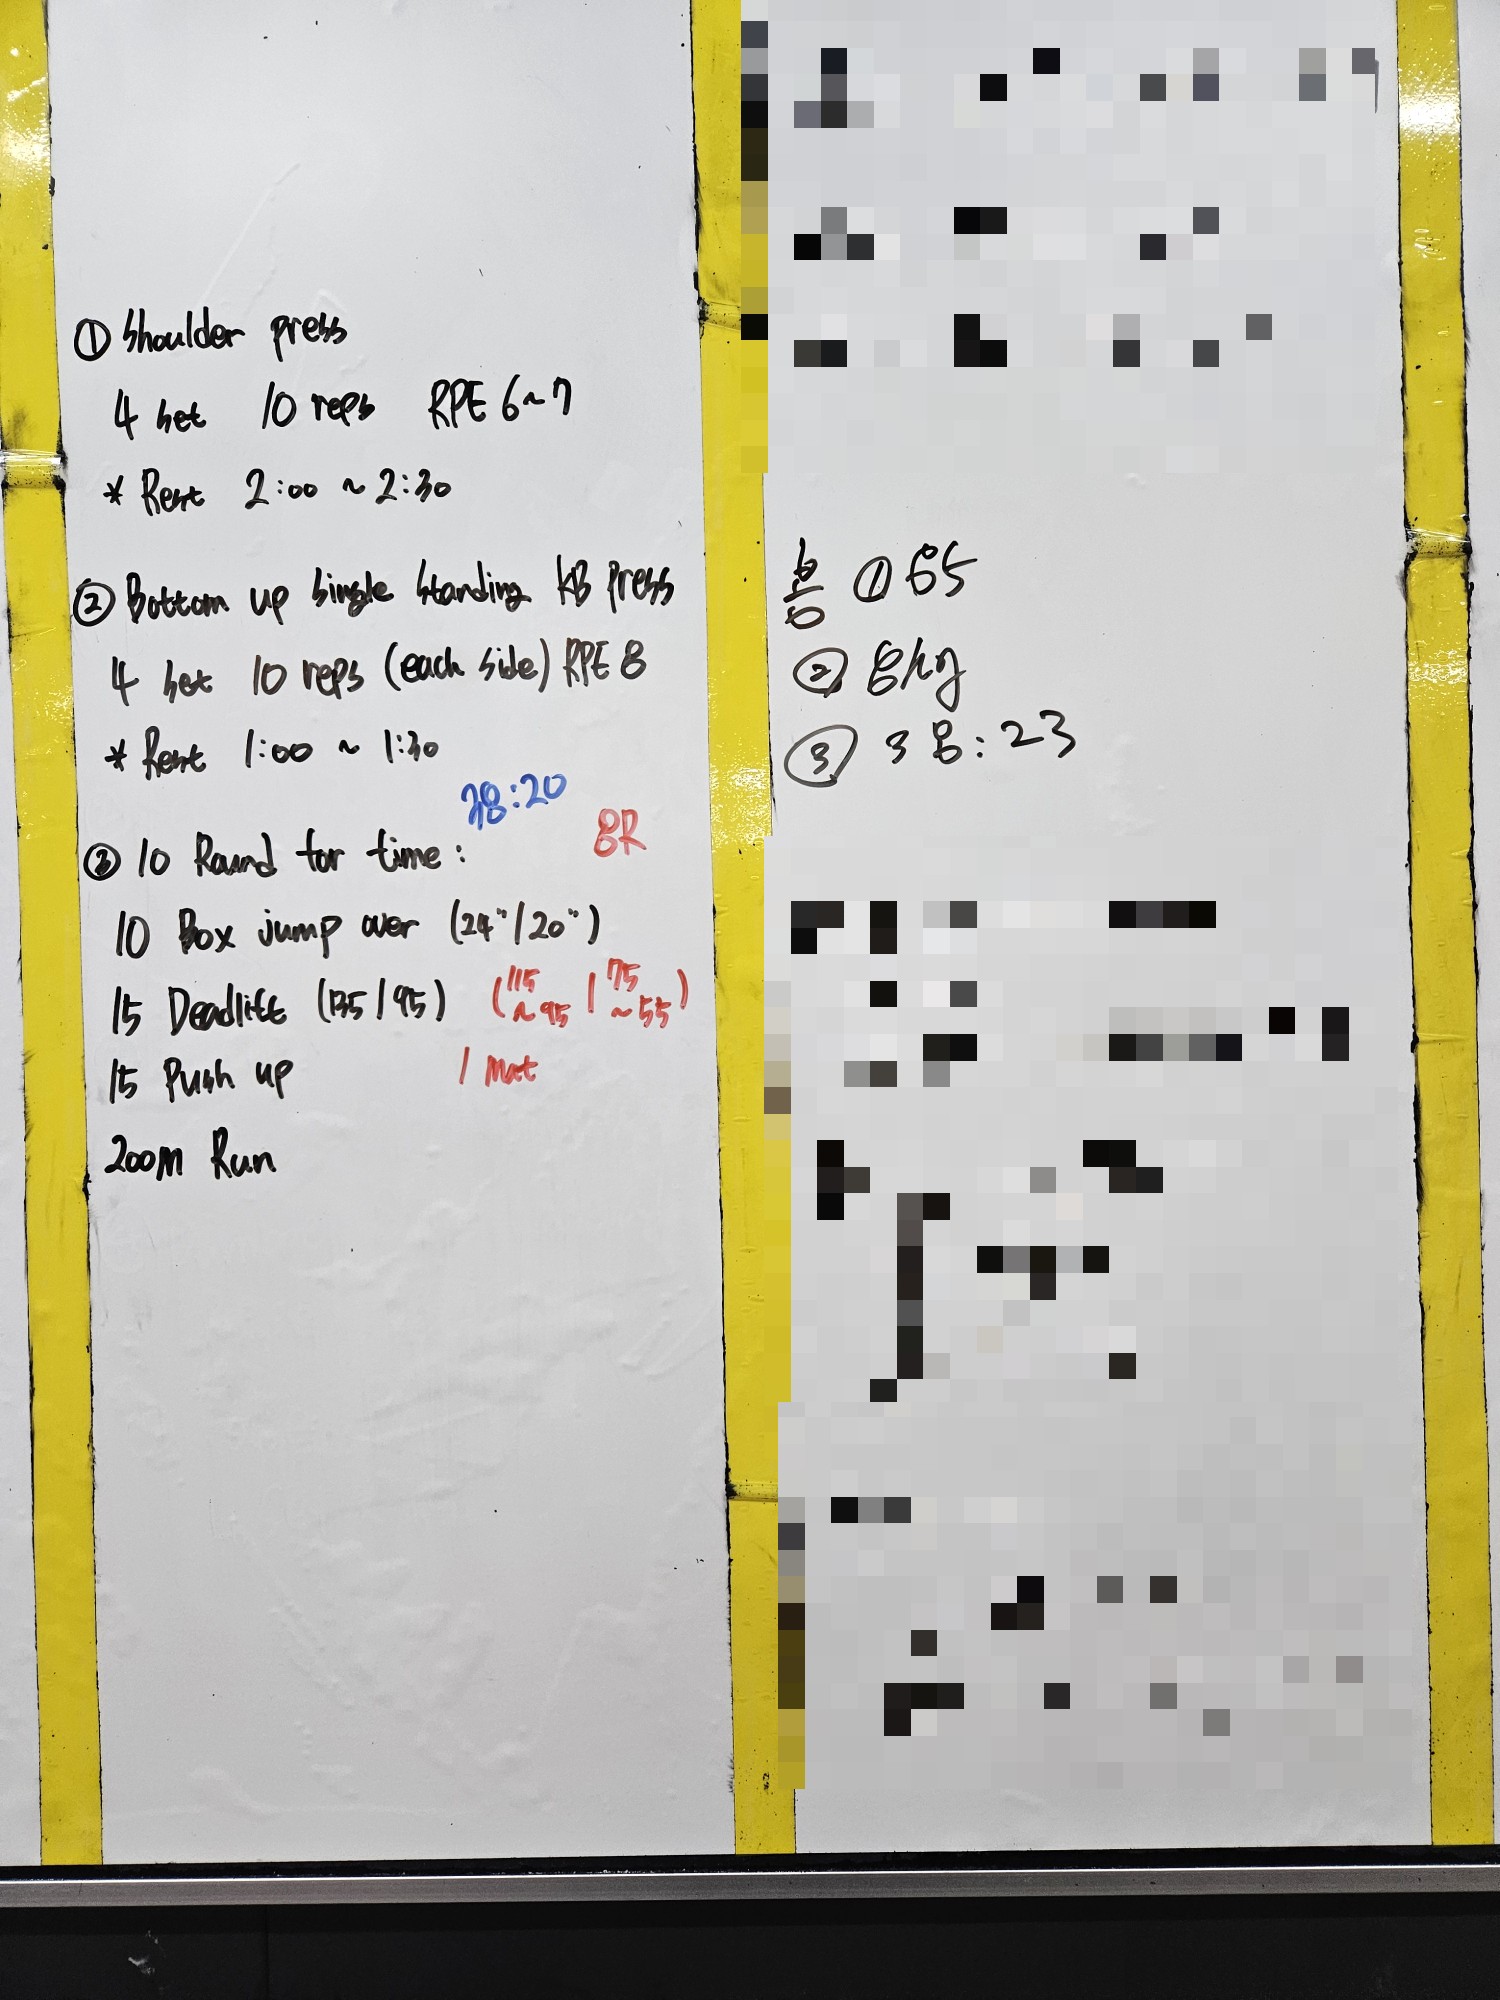 ① Shoulder press
4 set 10 reps RPE 6~7
* Rest 2:00 ~ 2:30
② Bottom up single standing KB press
4 set 10 reps (each side) RPE 8
* Rest 1:00 ~ 1:30
:20
③ 10 Round for time: 8R
10 Box jump over (24"/20")
15 Deadlift (135/95) (115~95/75~55)
15 Push up 1 Mat
200m Run
봉 ① 65
② 8kg
③ 38:23